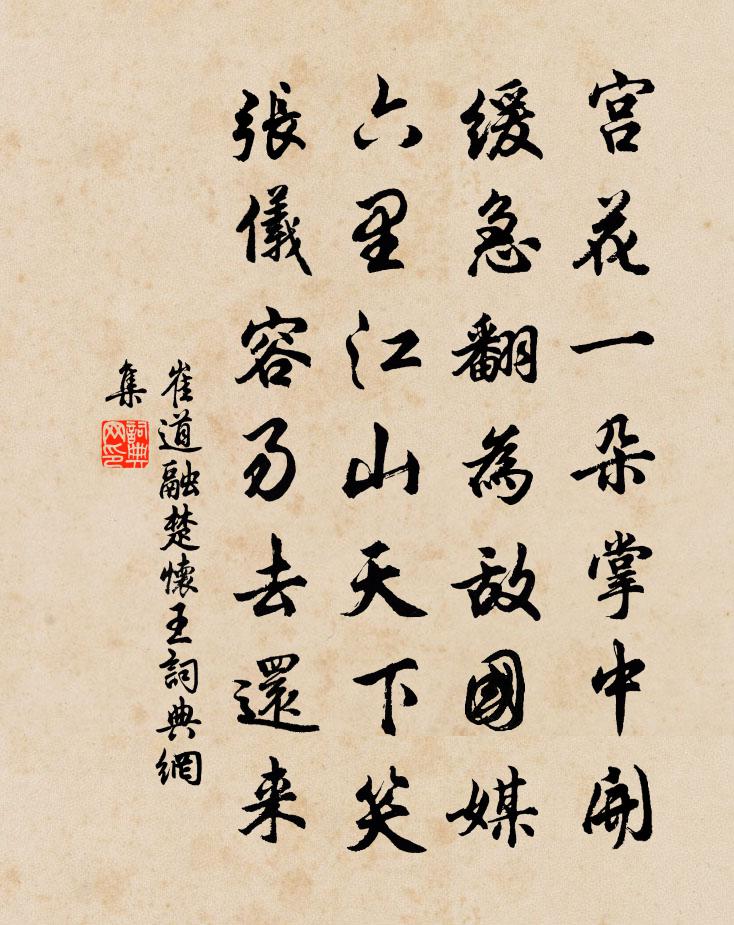 宫花一朵掌中開
緩急翻為敌國媒
六里江山天下笑
張儀容易去還来
崔道融楚懷王詞典網
集
詞典網印